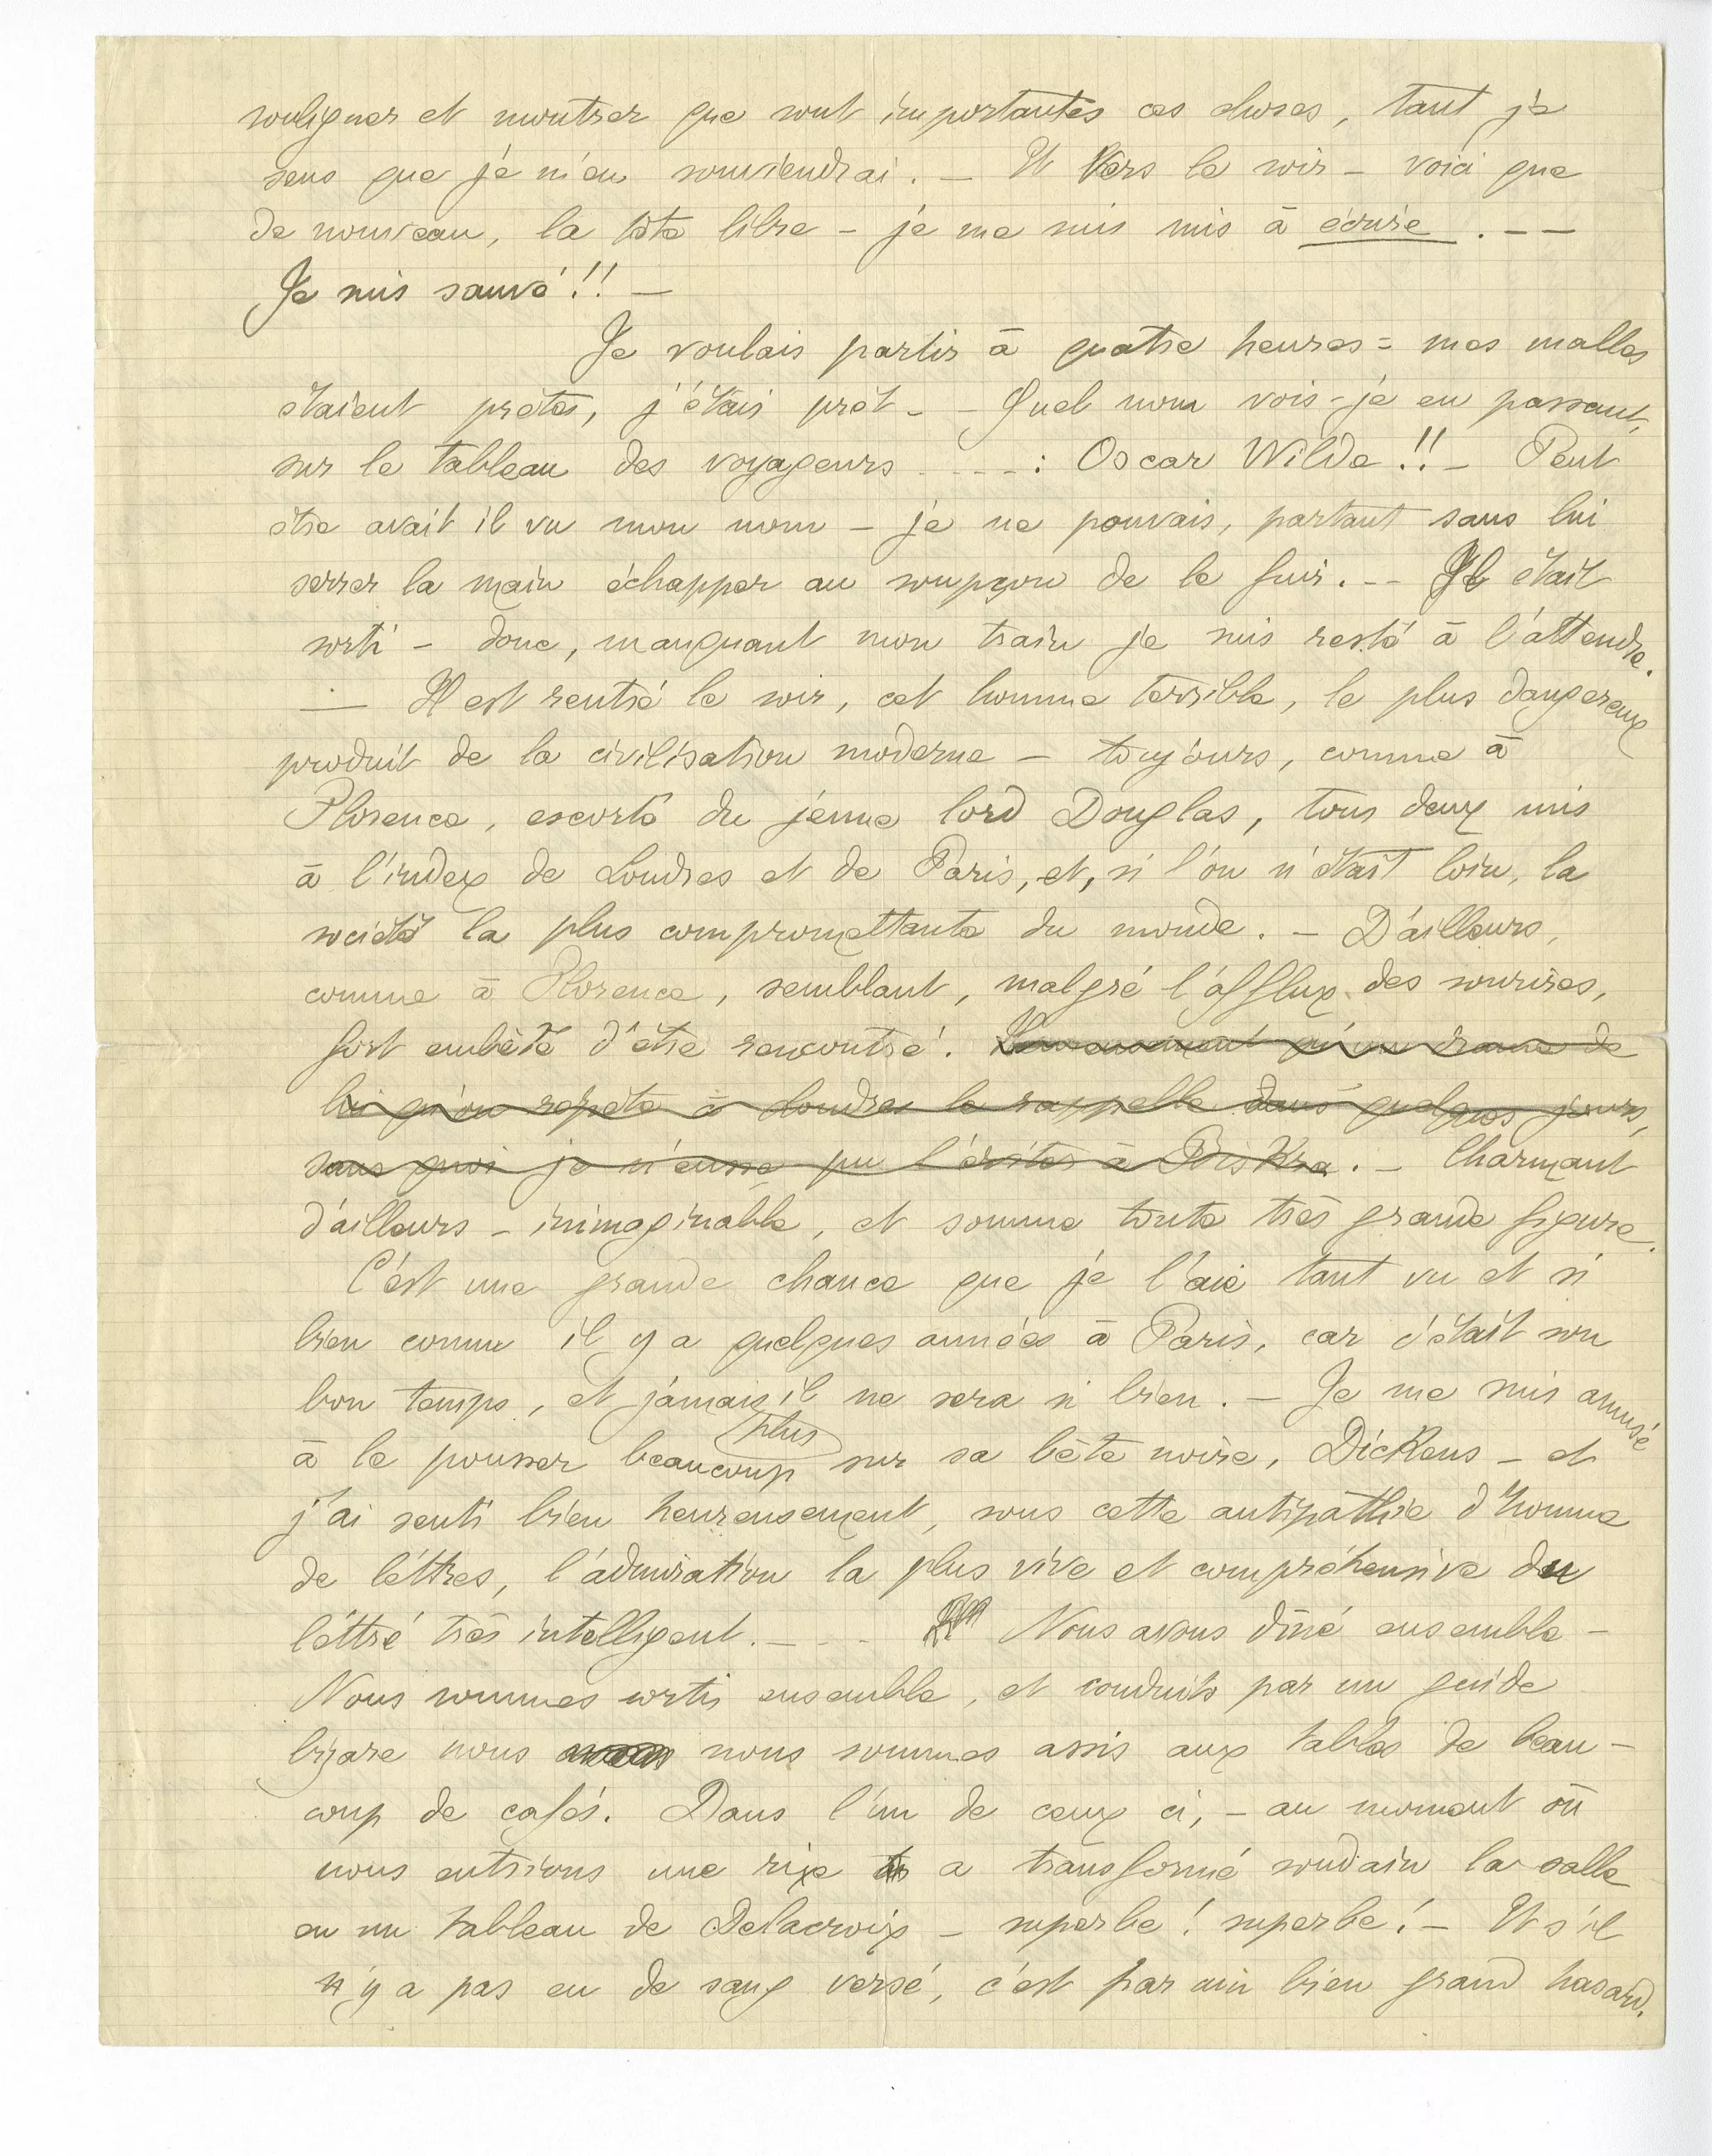 souligner et montrer que sont importantes ces choses, tant je
sens que je m'en souviendrai. – Et Vers le soir – voici que
de nouveau, la tête libre – je me suis mis à écrire . – –
Je suis sauvé !! –
Je voulais partir à quatre heures = mes malles
étaient prêtes, j'étais prêt – – Quel nom vois-je en passant,
sur le tableau des voyageurs - - - - : Oscar Wilde !! – Peut
être avait il vu mon nom – je ne pouvais, partant sans lui
serrer la main échapper au soupçon de le fuir. – – Il était
sorti – donc, manquant mon train je suis resté à l'attendre.
— Il est rentré le soir, cet homme terrible, le plus dangereux
produit de la civilisation moderne – toujours, comme à
Florence, escorté du jeune lord Douglas, tous deux mis
à l'index de Londres et de Paris, et, si l'on n'était loin, la
société la plus compromettante du monde. – D'ailleurs,
comme à Florence, semblant, malgré l'afflux des sourires,
fort embêté d'être rencontré. Heureusement qu'un drame de
lui qu'on répète à Londres le rappelle dans quelques jours,
sans quoi je n'eusse pu l'éviter à Biskra. – Charmant
d'ailleurs – inimaginable, et somme toute très grande figure.
C'est une grande chance que je l'aie tant vu et si
bien connu il y a quelques années à Paris, car c'était son
bon temps, et jamais il ne sera si bien. – Je me suis amusé
à le pousser beaucoup plus sur sa bête noire, Dickens – et
j'ai senti bien heureusement, sous cette antipathie d'homme
de lettres, l'admiration la plus vive et compréhensive du
lettré très intelligent. – - - Nous avons dîné ensemble –
Nous sommes sortis ensemble, et conduits par un guide
bizare nous avons nous sommes assis aux tables de beau-
coup de cafés. Dans l'un de ceux ci, – au moment où
nous entrions une rixe a transformé soudain la salle
en un tableau de Delacroix – superbe ! superbe ! – Et s'il
n'y a pas eu de sang versé, c'est par un bien grand hasard.